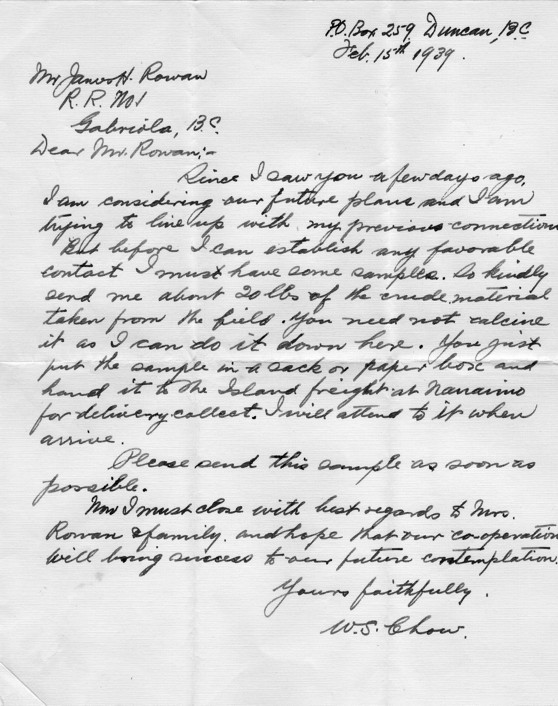 P.O. Box 259, Duncan, B.C
Feb. 15th 1939.
Mr James H. Rowan
R. R. No 1
Gabriola, B.C.
Dear Mr. Rowan;-
Since I saw you a few days ago,
I am considering our future plans and I am
trying to line up with my previous connection
But before I can establish any favorable
contact I must have some samples. So kindly
send me about 20 lbs of the crude material
taken from the field. You need not calcine
it as I can do it down here. You just
put the sample in a sack or paper box and
hand it to the Island freight at Nanaimo
for delivery collect. I will attend to it when
arrive.
Please send this sample as soon as
possible.
Now I must close with best regards to Mrs.
Rowan & family. and hope that our co-operation
will bring success to our future contemplation.
Yours faithfully.
W.S. Chow.